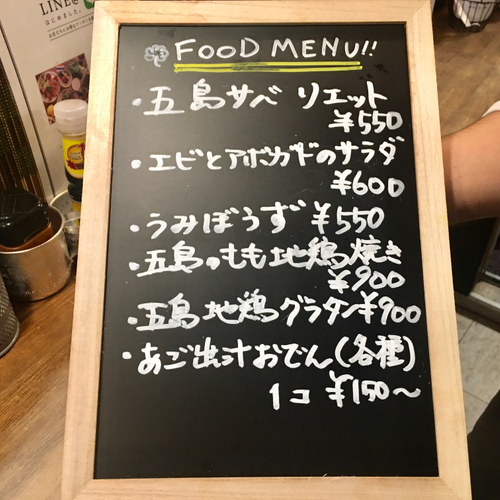 LINE@
はじめました。
FOOD MENU!!
・五島サバ リエット
¥550
・エビとアボカドのサラダ
¥600
・うみぼうず ¥550
・五島のもも地鶏焼き
¥900
・五島地鶏グラタン¥900
・あご出汁おでん(各種)
1コ ¥150〜